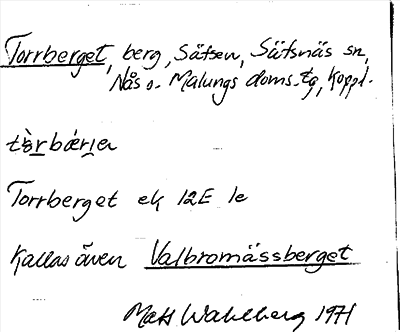 Torrberget, berg, Sätsen, Sätsnäs sn,
Nås o. Malungs doms. tg, Koppl.
tòrbærja
Torrberget ek 12E 1e
Kallas även Valbromässberget
Mats Wahlberg 1971